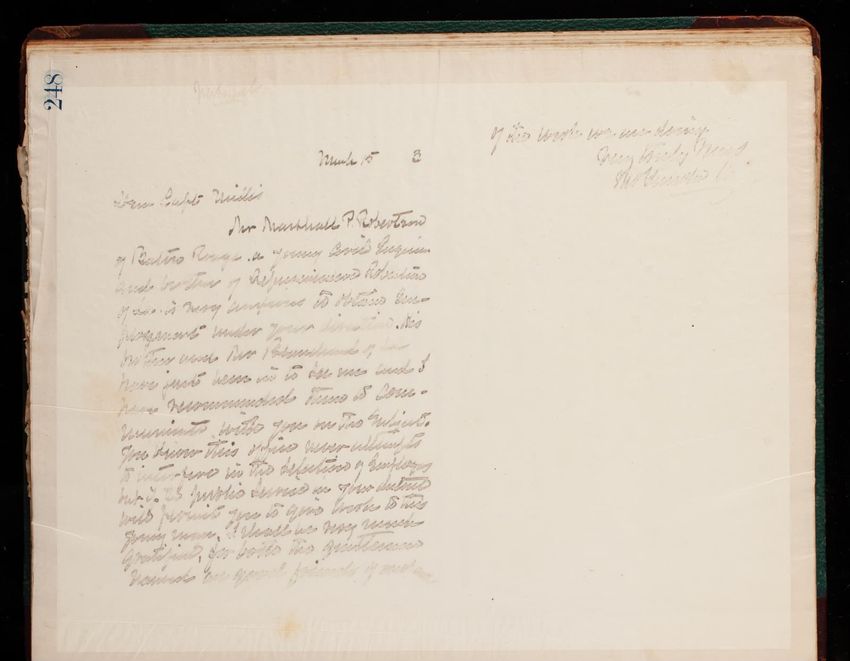 248
March 15 3
Dear Capt Willis
Mr Marshall P. Robertson
of Baton Rouge, a young Civil Engineer
and brother of Representative Robertson
of La. is very anxious to obtain Em-
ployment under your direction. His
brother and Mr
have just been in to see me and I
have recommended them to Com-
municate with you on the subject.
You know this office never attempts
to interfere in the selection of Employes
but if the public service in your district
will permit you to give work to this
young man, I shall be very much
gratified, for both the gentlemen
named are good friends of
of the work we are doing.
Very truly yours